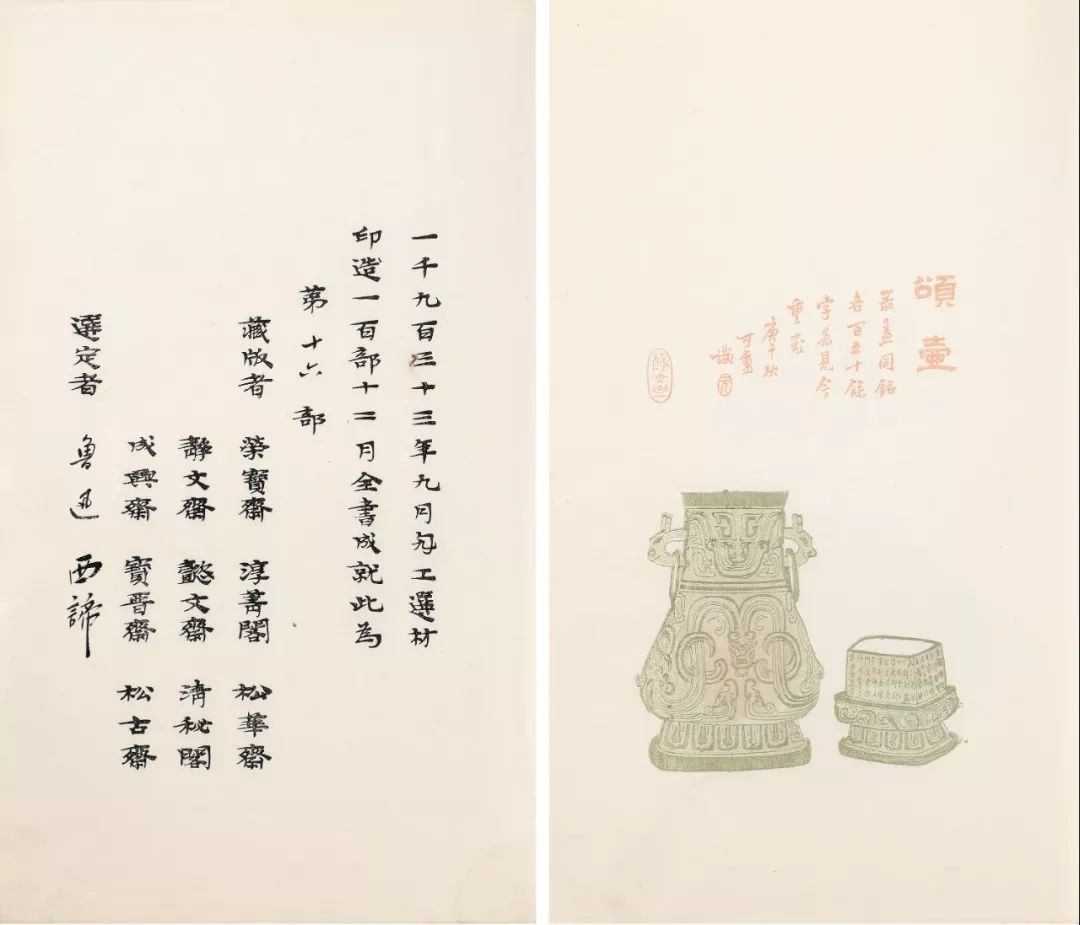 一千九百三十三年九月勼工選材
印造一百部十二月全書成就此為
第十六部
藏版者 榮寶齋 淳菁閣 松華齋
靜文齋 懿文齋 清秘閣
成興齋 寶晋齋 松古齋
選定者 魯迅 西諦
頌壺
器蓋同銘
各百五十餘
字器見今
重完
庚午秋
可盦
識